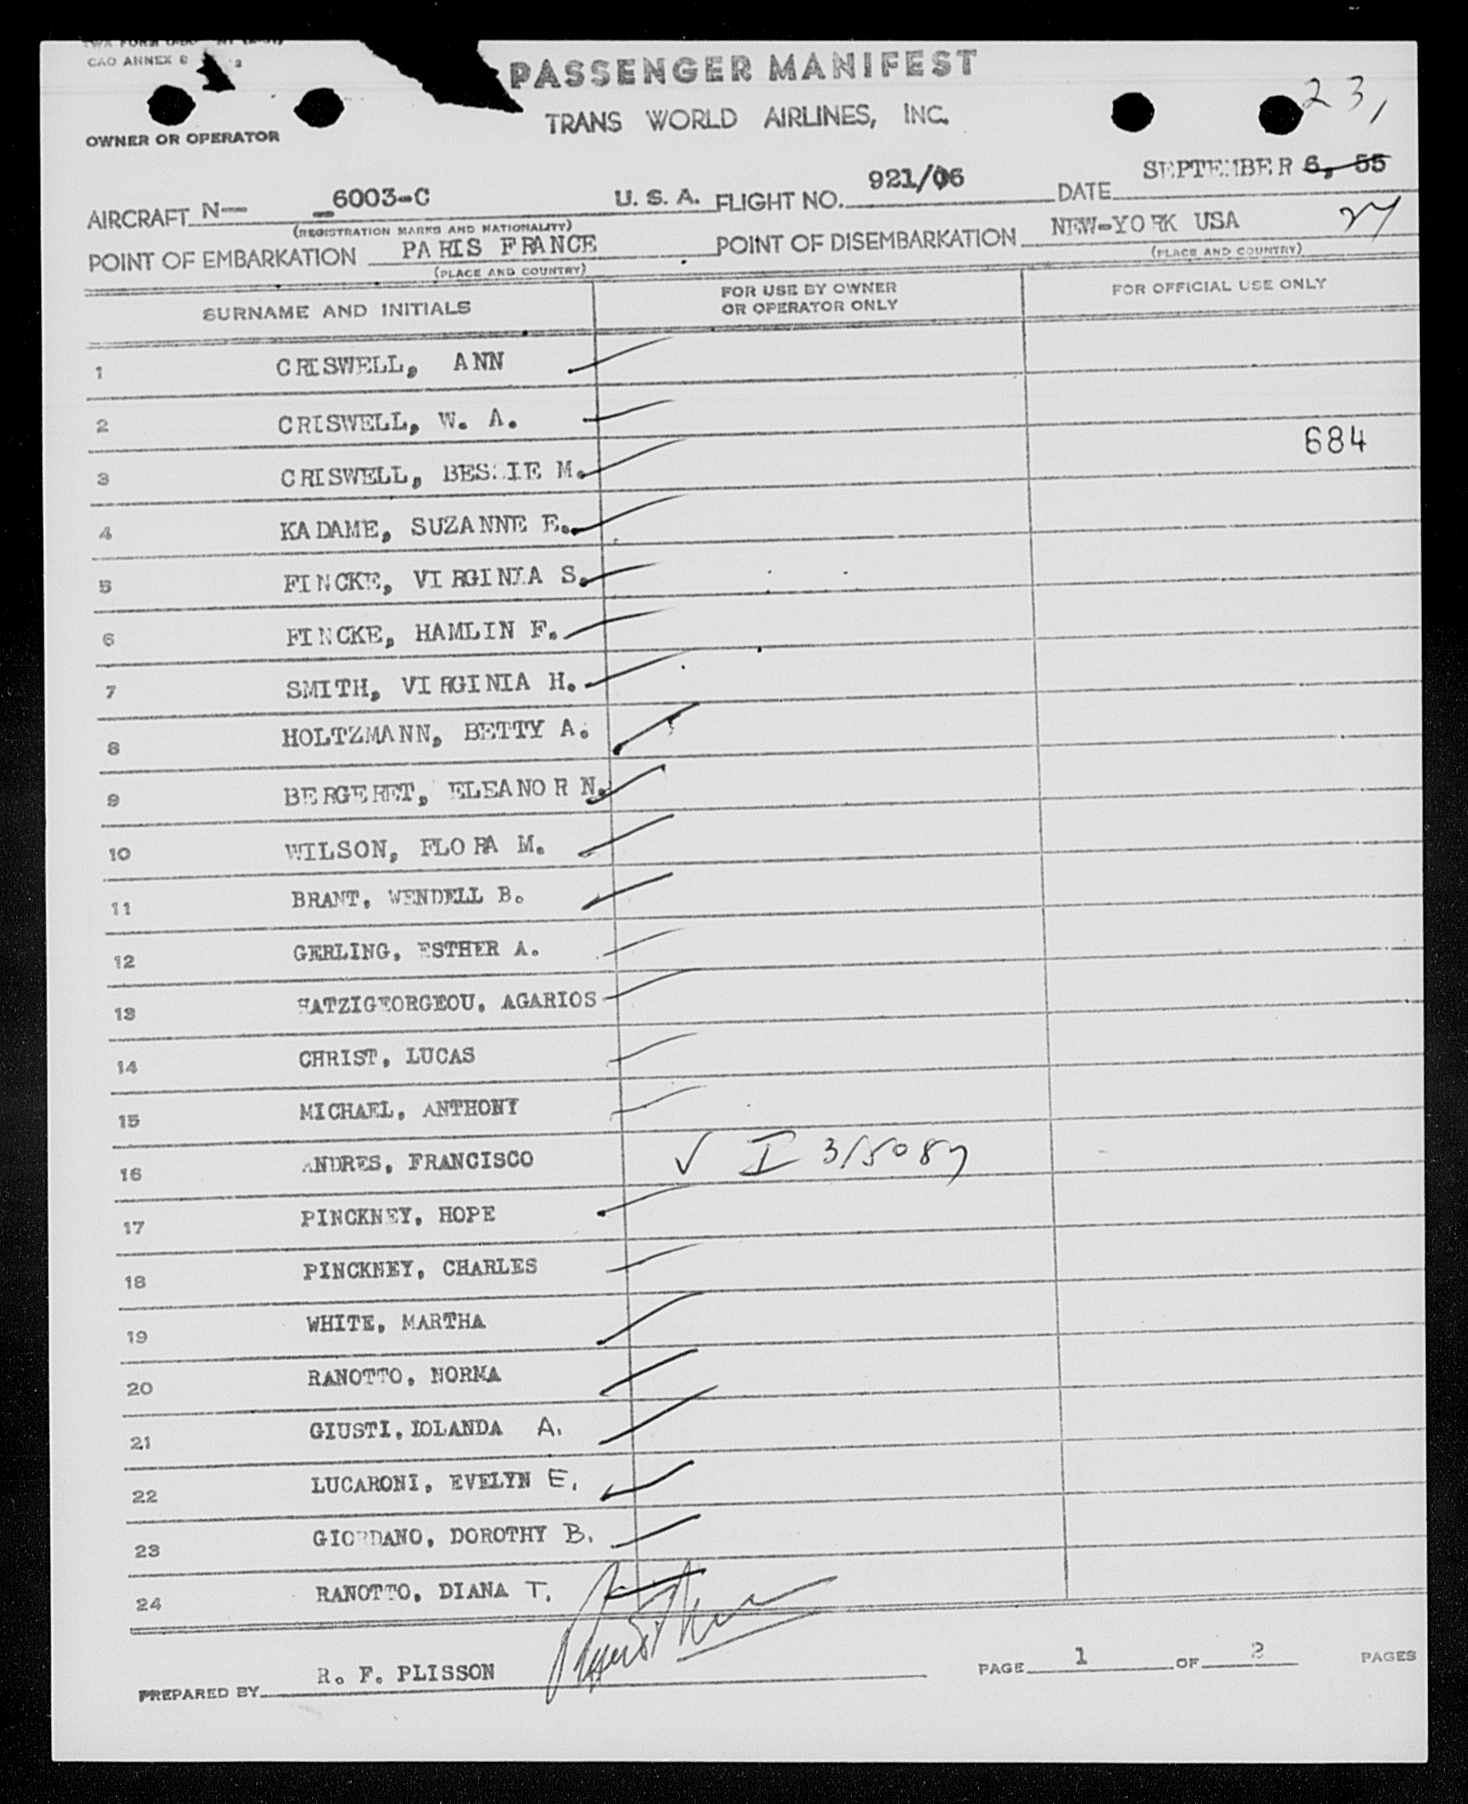 CAO ANNEX
PASSENGER MANIFEST
23,
TRANS WORLD AIRLINES, INC.
OWNER OR OPERATOR
AIRCRAFT N- 6003-C U. S. A. FLIGHT NO. 921/06 DATE SEPTEMBER 6, 55
(REGISTRATION MARKS AND NATIONALITY)
POINT OF EMBARKATION PARIS FRANCE POINT OF DISEMBARKATION NEW-YORK USA
(PLACE AND COUNTRY) (PLACE AND COUNTRY)
SURNAME AND INITIALS FOR USE BY OWNER OR OPERATOR ONLY FOR OFFICIAL USE ONLY
1 CRISWELL, ANN
2 CRISWELL, W. A.
684
3 CRISWELL, BESSIE M.
4 KADAME, SUZANNE E.
5 FINCKE, VIRGINIA S.
6 FINCKE, HAMLIN F.
7 SMITH, VIRGINIA H.
8 HOLTZMANN, BETTY A.
9 BERGERET, ELEANOR N.
10 WILSON, FLORA M.
11 BRANT, WENDELL B.
12 GERLING, ESTHER A.
13 HATZIGEORGEOU, AGARIOS
14 CHRIST, LUCAS
15 MICHAEL, ANTHONY
16 ANDRES, FRANCISCO ✓ I 315087
17 PINCKNEY, HOPE
18 PINCKNEY, CHARLES
19 WHITE, MARTHA
20 RANOTTO, NORMA
21 GIUSTI, IOLANDA A.
22 LUCARONI, EVELYN E.
23 GIORDANO, DOROTHY B.
24 RANOTTO, DIANA T.
PREPARED BY R. F. PLISSON PAGE 1 OF 2 PAGES